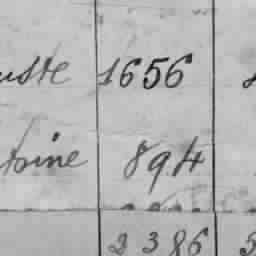 uste 1656
toine 894
2386